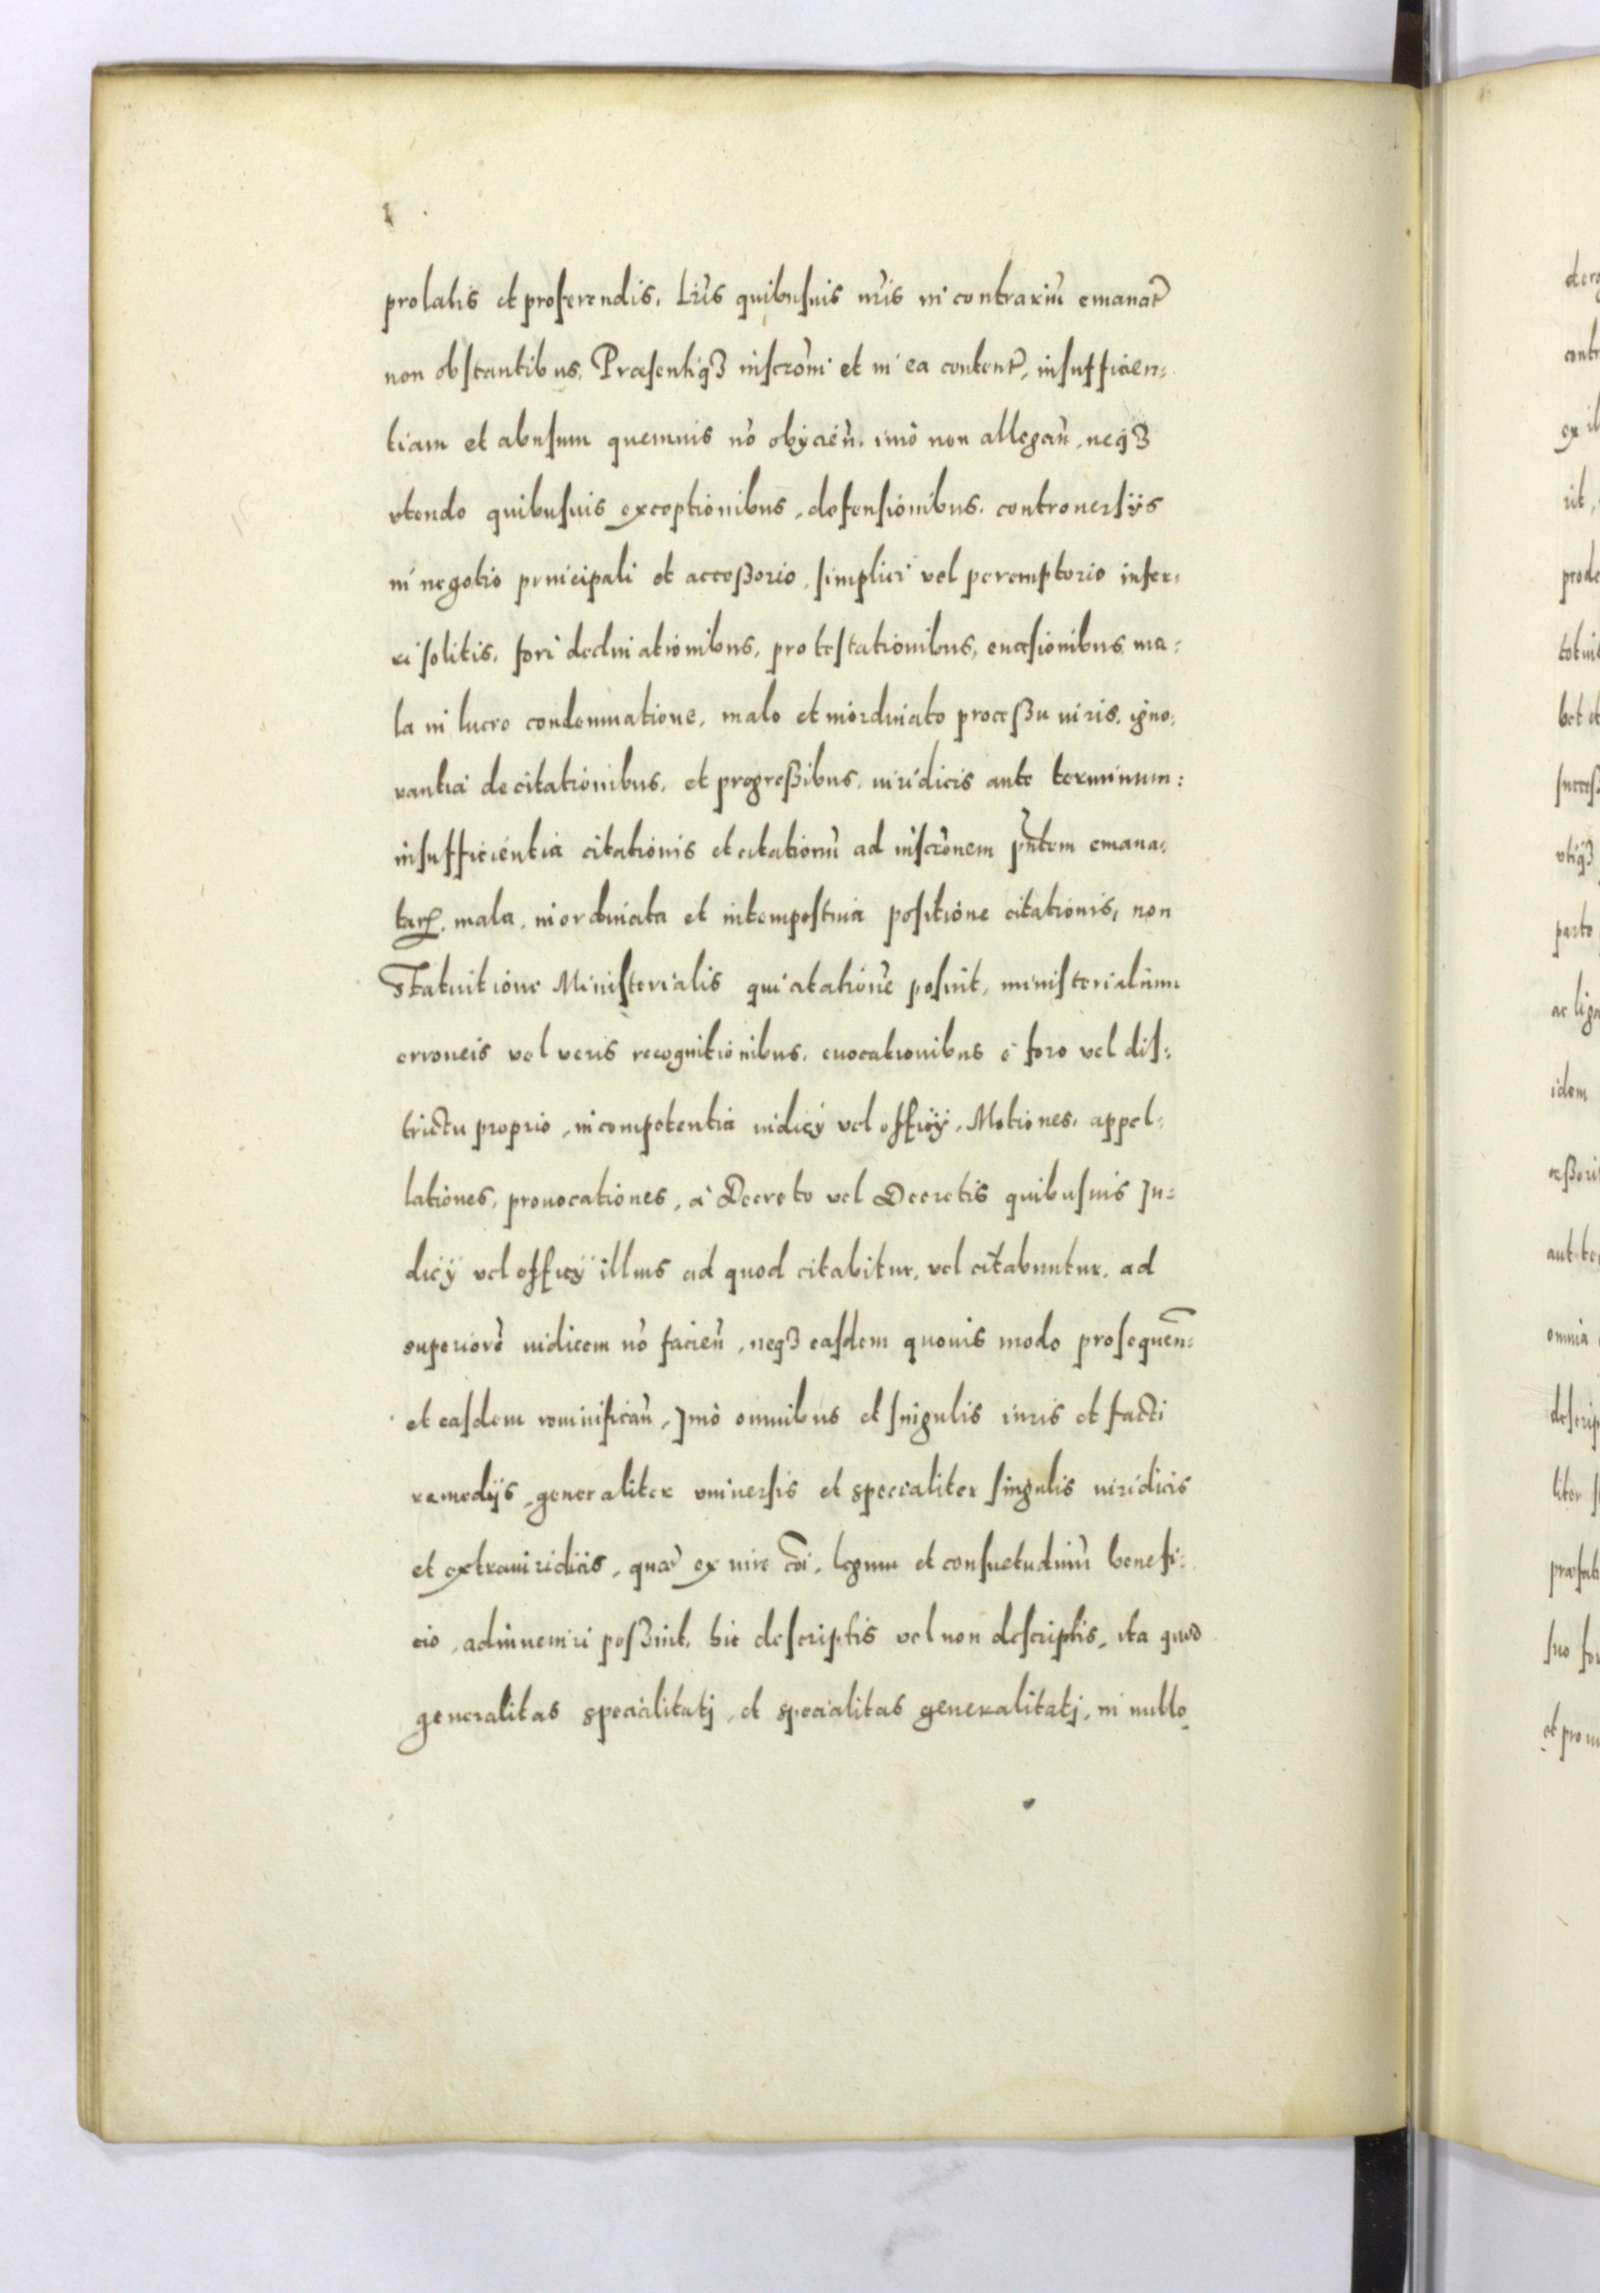 prolatis et proferendis, Lrīs quibusuis nrīs in contrariū emanat̃
non obstantibus, Præsentiq3 inscrōni et in ea content̃, insufficien:
tiam et abusum quemuis nō obÿcien̄, imò non allegan̄, neq3
vtendo quibusuis exceptionibus, defensionibus, controuersÿs
in negotio principali et acceßorio, simplici vel peremptorio inser:
ri solitis, fori declinationibus, protestationibus, euasionibus, ma:
la in lucro condemnatione, malo et inordinato proceßu iuris, igno:
rantia de citationibus, et progreßibus, iuridicis ante terminum:
insufficientia citationis et citationū ad inscrōnem pñtem emana:
tarꝝ, mala, inordinata et intempestiua positione citationis, non
statuitione Ministerialis qui citationē posuit, ministerialium
erroneis vel veris recognitionibus, euocationibus è foro vel dis:
trictu proprio, incompetentia iudicÿ vel officÿ, Motiones, appel:
lationes, prouocationes, à Decreto vel Decretis quibusuis Ju:
dicÿ vel officÿ illius ad quod citabitur, vel citabuntur, ad
superiorē iudicem nō facien̄, neq3 easdem quouis modo prosequen̄:
et easdem communifican̄, Jmò omnibus et singulis iuris et facti
remedijs, generaliter vniuersis et specialiter singulis iuridicis
et extraiuridicis, quæ ex iure cōi, legum et consuetudinū benefi:
cio, adinueniri poßint, hic descriptis vel non descriptis, ita quod
generalitas specialitatj, et specialitas generalitatj, in nullo